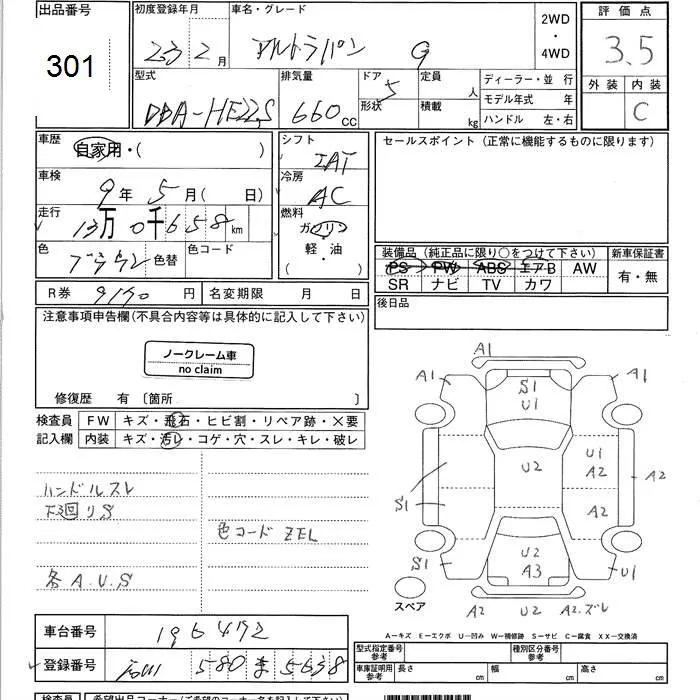 出品番号 初度登録年月 車名・グレード 評価点
301 23 2月 アルトラパン G 2WD・4WD 3.5
型式 排気量 ドア 形状 定員 積載 ディーラー・並行 外装 内装
DBA-HE22S 660cc 5 人 kg モデル年式 年 C
ハンドル 左・右
車歴 自家用・( ) シフト IAT セールスポイント(正常に機能するものに限ります)
車検 9年5月( 日) 冷房 AC
走行 13万0千658km 燃料 ガソリン
色 ブラウン 色替 色コード 軽・油 ( ・ )
装備品(純正品に限り○をつけて下さい) 新車保証書
PS PW ABS エアB AW 有・無
SR ナビ TV カワ
R券 9190円 名変期限 月 日 後日品
注意事項申告欄(不具合内容等は具体的に記入して下さい)
ノークレーム車
no claim
修復歴 有〔箇所 〕
検査員 FW キズ・飛石・ヒビ割・リペア跡・×要
記入欄 内装 キズ・汚レ・コゲ・穴・スレ・キレ・破レ
ハンドルスレ
下回リS
色コード ZEL
各A.U.S
A1
A1 S1 A1
U1
U2 U1
A2 A2
S1 A2
U2
S1 A3 U1
スペア A2 U2 A2.ズレ
A-キズ E-エクボ U-凹み W-補修跡 S-サビ C-腐食 XX-交換済
車台番号 196472
登録番号 石川 580 ま 5638
型式指定番号 参考 種別区分番号 参考
車庫証明用 参考 長さ cm 幅 cm 高さ cm
検査員 希望出品コーナー(ご希望のコーナー名を記入